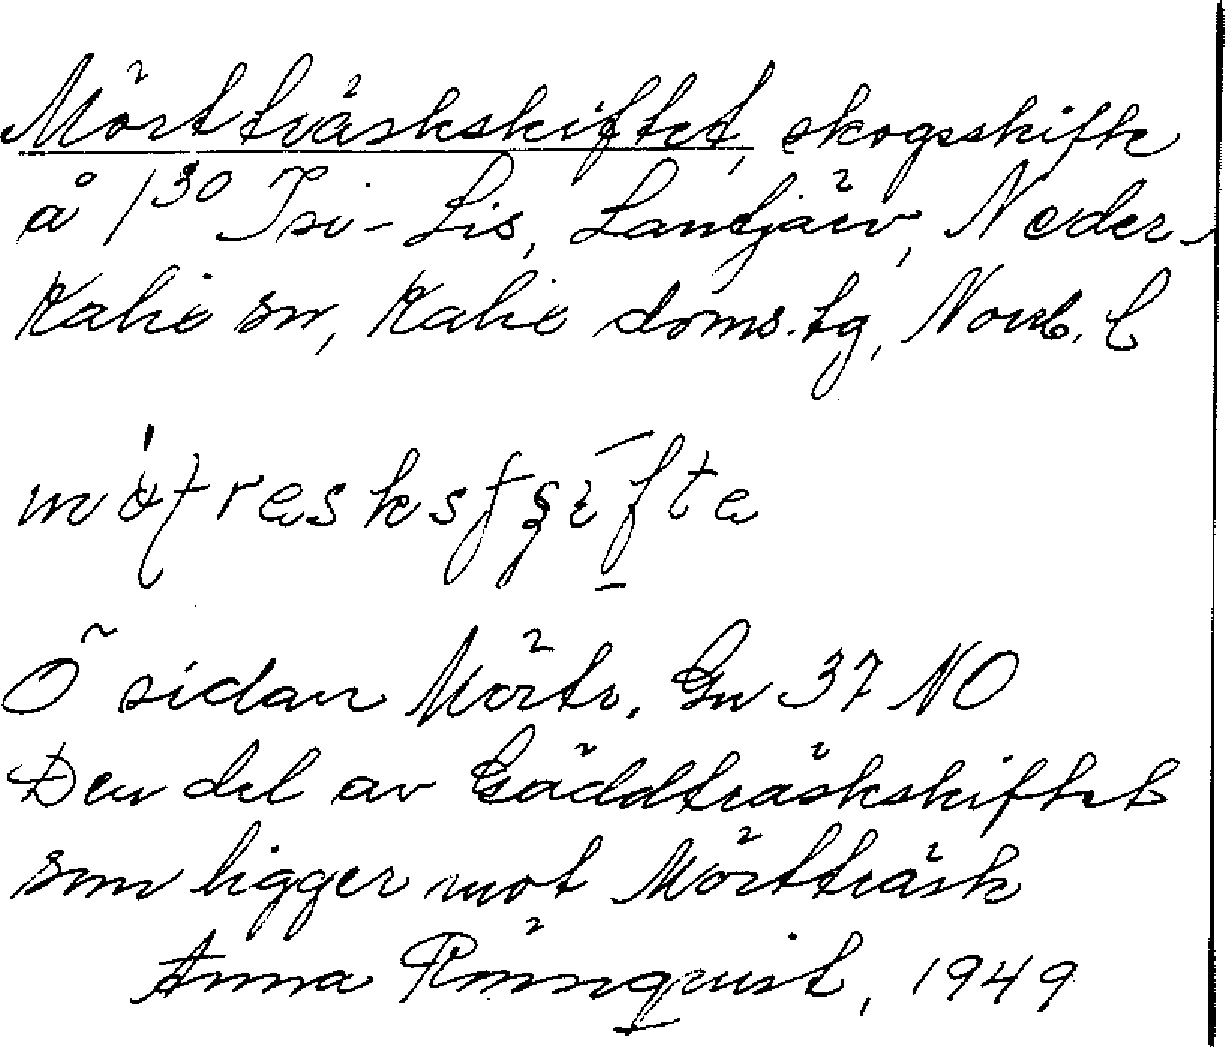 Mörtträskskiftet, skogsskifte
å 1³⁰ Isi-Lis, Lantjärv, Neder-
Kalix sn, Kalix doms. tg, Norrb. l
Ö sidan Mörttr. Gn 37 NO
Den del av Gäddträskskiftet
som ligger mot Mörtträsk
Anna Rönnqvist, 1949